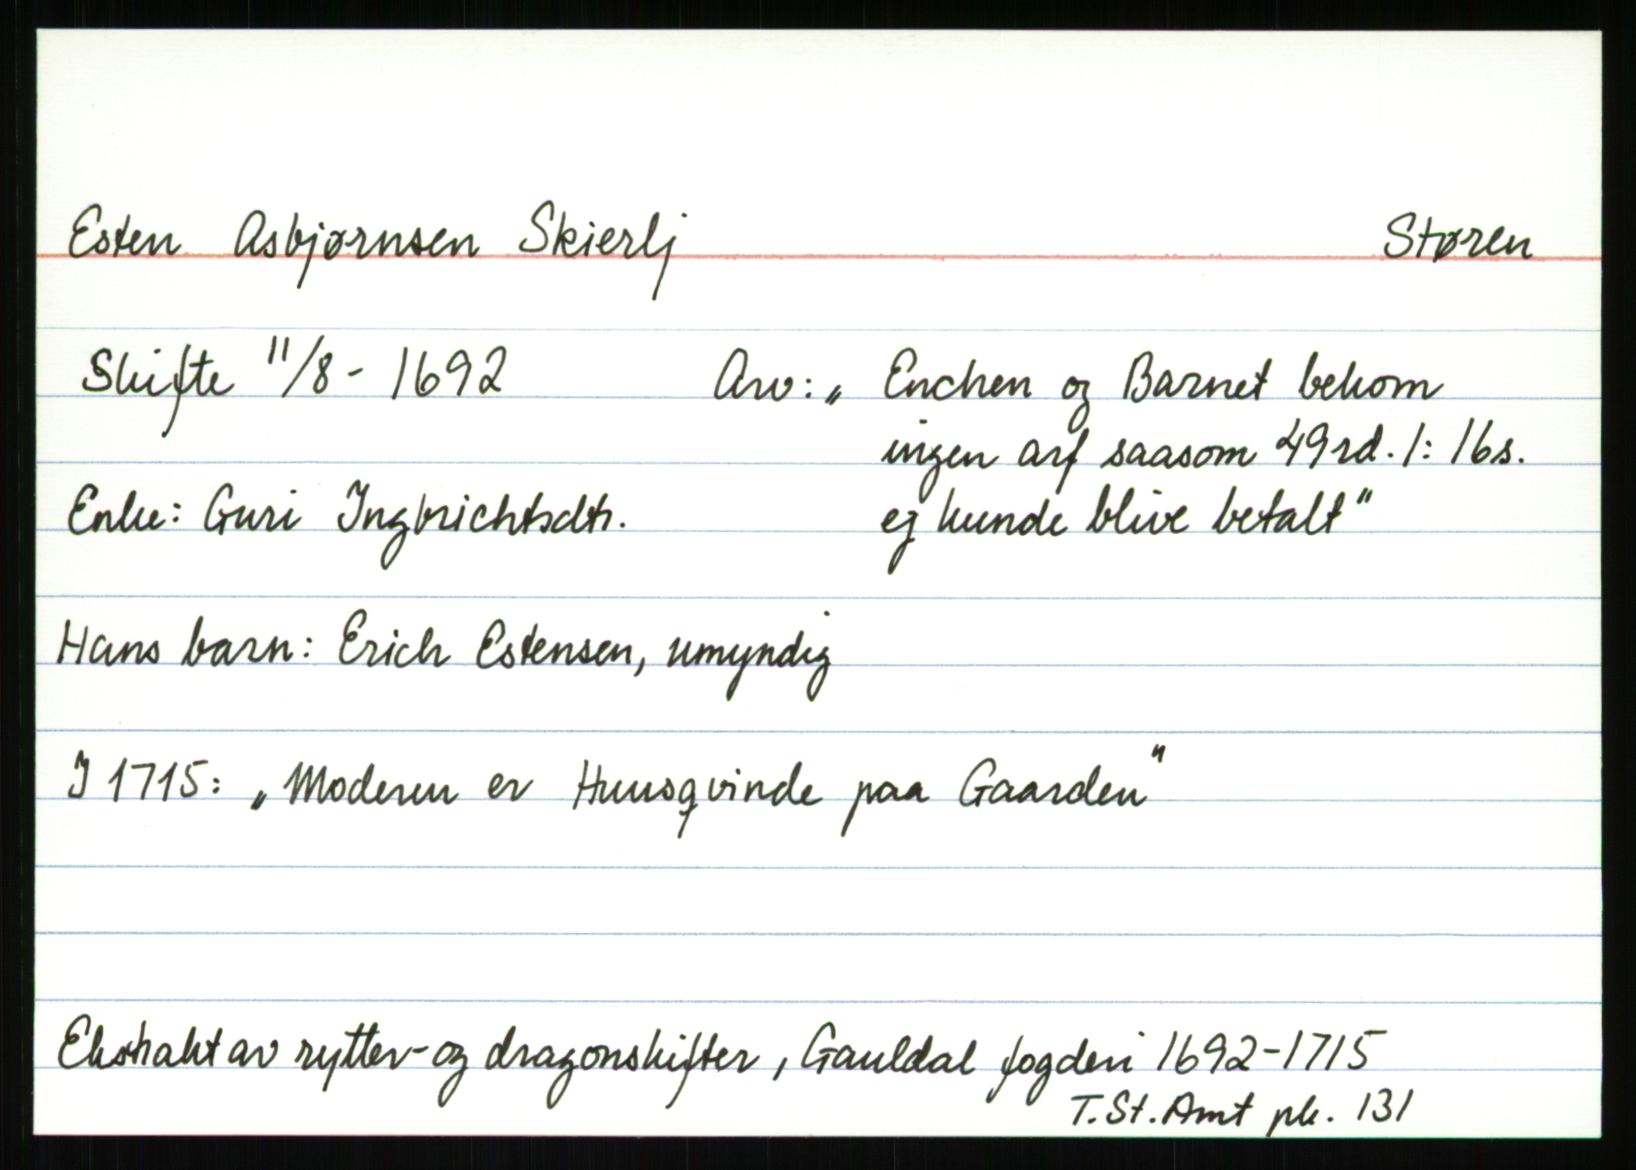 Esten Asbjørnsen Skierlj Støren
Skifte 11/8 - 1692 Arv: „ Enchen og Barnet bekom
ingen arf saasom 49rd. 1: 16s.
Enke: Guri Ingbrichtsdtr. ej kunde blive betalt"
Hans barn: Erich Estensen, umyndig
I 1715: „Moderen er Huusqvinde paa Gaarden"
Ekstrakt av rytter- og dragonskifter, Gauldal fogderi 1692-1715
T. St. Amt pk. 131